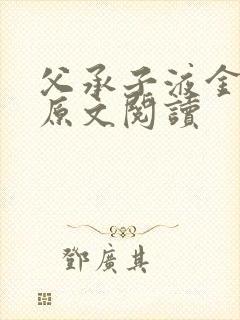 父承子液金
原文閱讀
鄧廣其